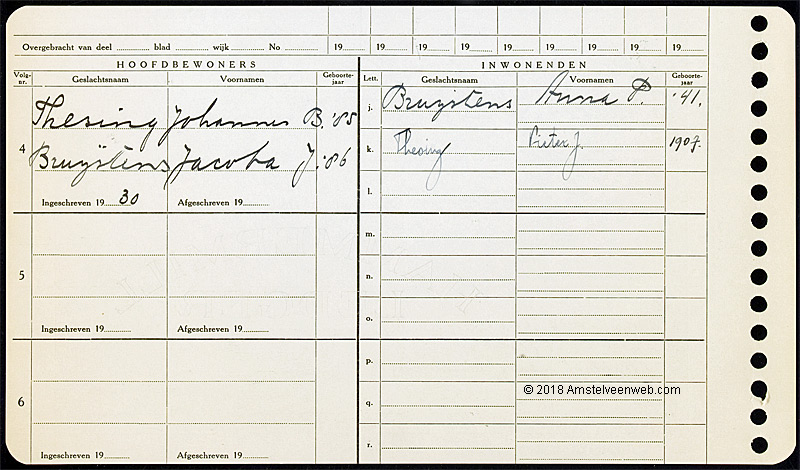 Overgebracht van deel ........ blad ........ wijk ........ No ........ 19.... 19.... 19.... 19.... 19.... 19.... 19.... 19....
HOOFDBEWONERS
Volg-nr. Geslachtsnaam Voornamen Geboorte-jaar
4
Thesing Johannes B. '85
Bruijstens Jacoba J. '86
Ingeschreven 19 30 Afgeschreven 19........
5
Ingeschreven 19........ Afgeschreven 19........
6
Ingeschreven 19........ Afgeschreven 19........
INWONENDEN
Lett. Geslachtsnaam Voornamen Geboorte-jaar
j. Bruijstens Anna P. '41.
k. Thesing Pieter J. 1907.
l.
m.
n.
o.
p.
q.
r.
© 2018 Amstelveenweb.com